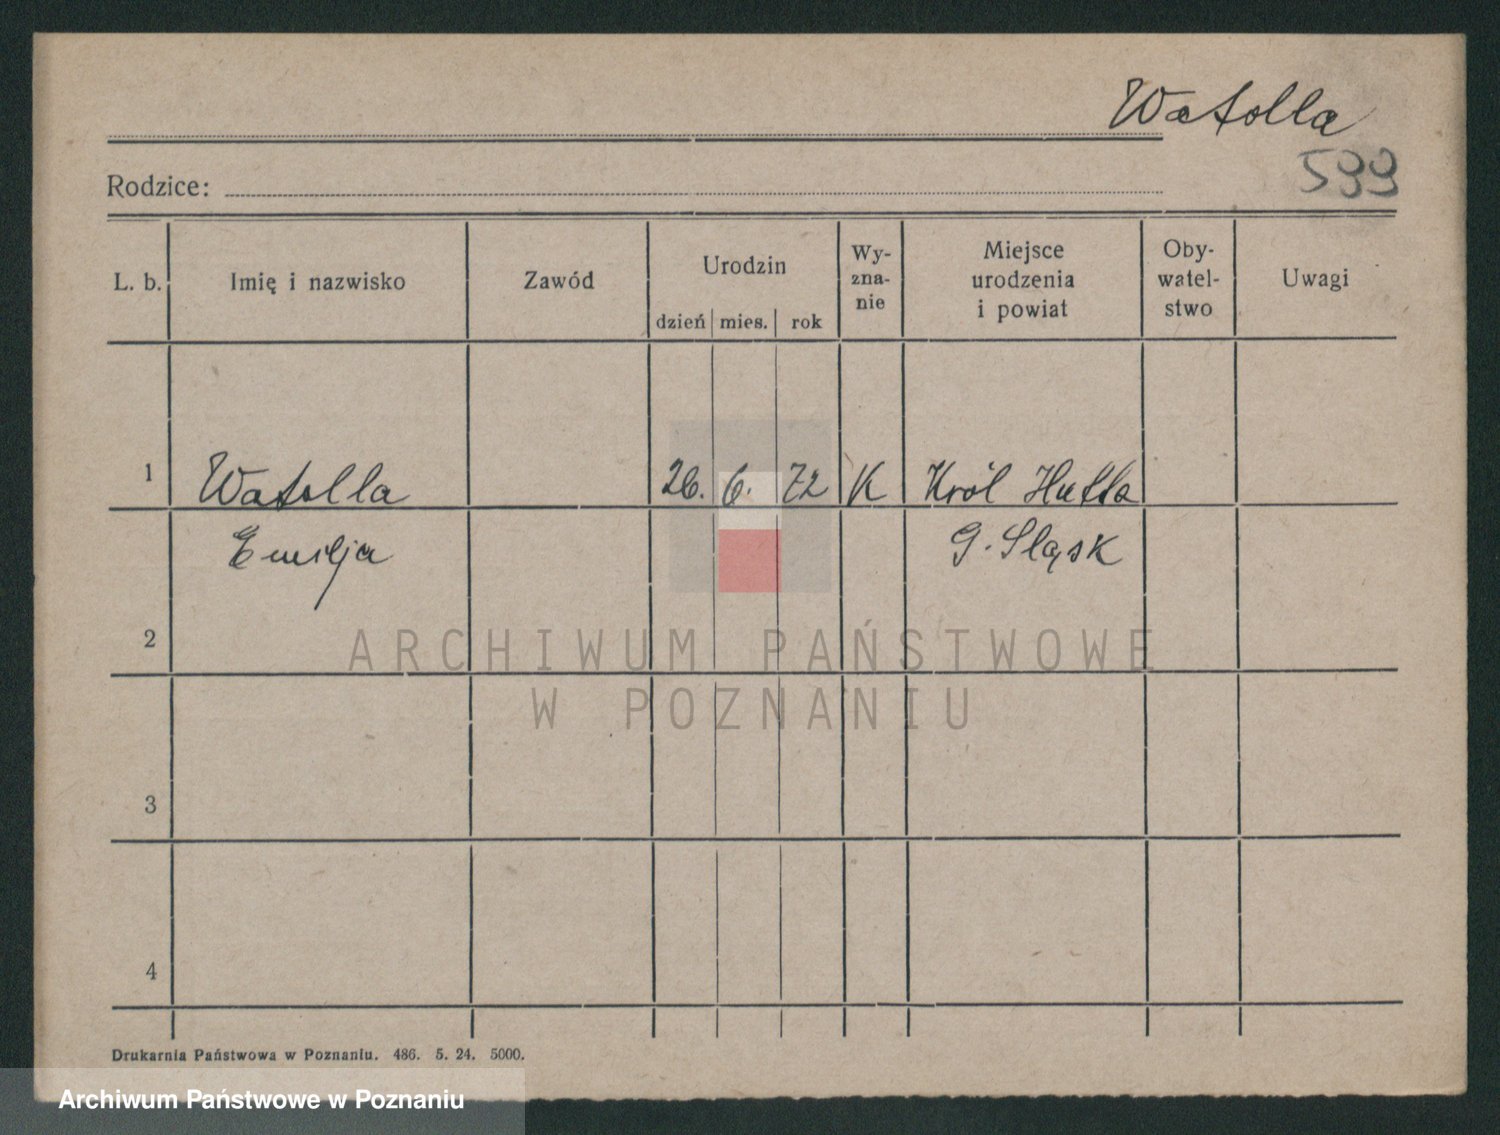 Watolla
599
Rodzice:
L. b. Imię i nazwisko Zawód Urodzin dzień mies. rok Wy-zna-nie Miejsce urodzenia i powiat Oby-watel-stwo Uwagi
1 Watolla 26. 6. 72 K Król Hutta
Emilja G. Sląsk
2
3
4
Drukarnia Państwowa w Poznaniu. 486. 5. 24. 5000.
ARCHIWUM PAŃSTWOWE
W POZNANIU
Archiwum Państwowe w Poznaniu